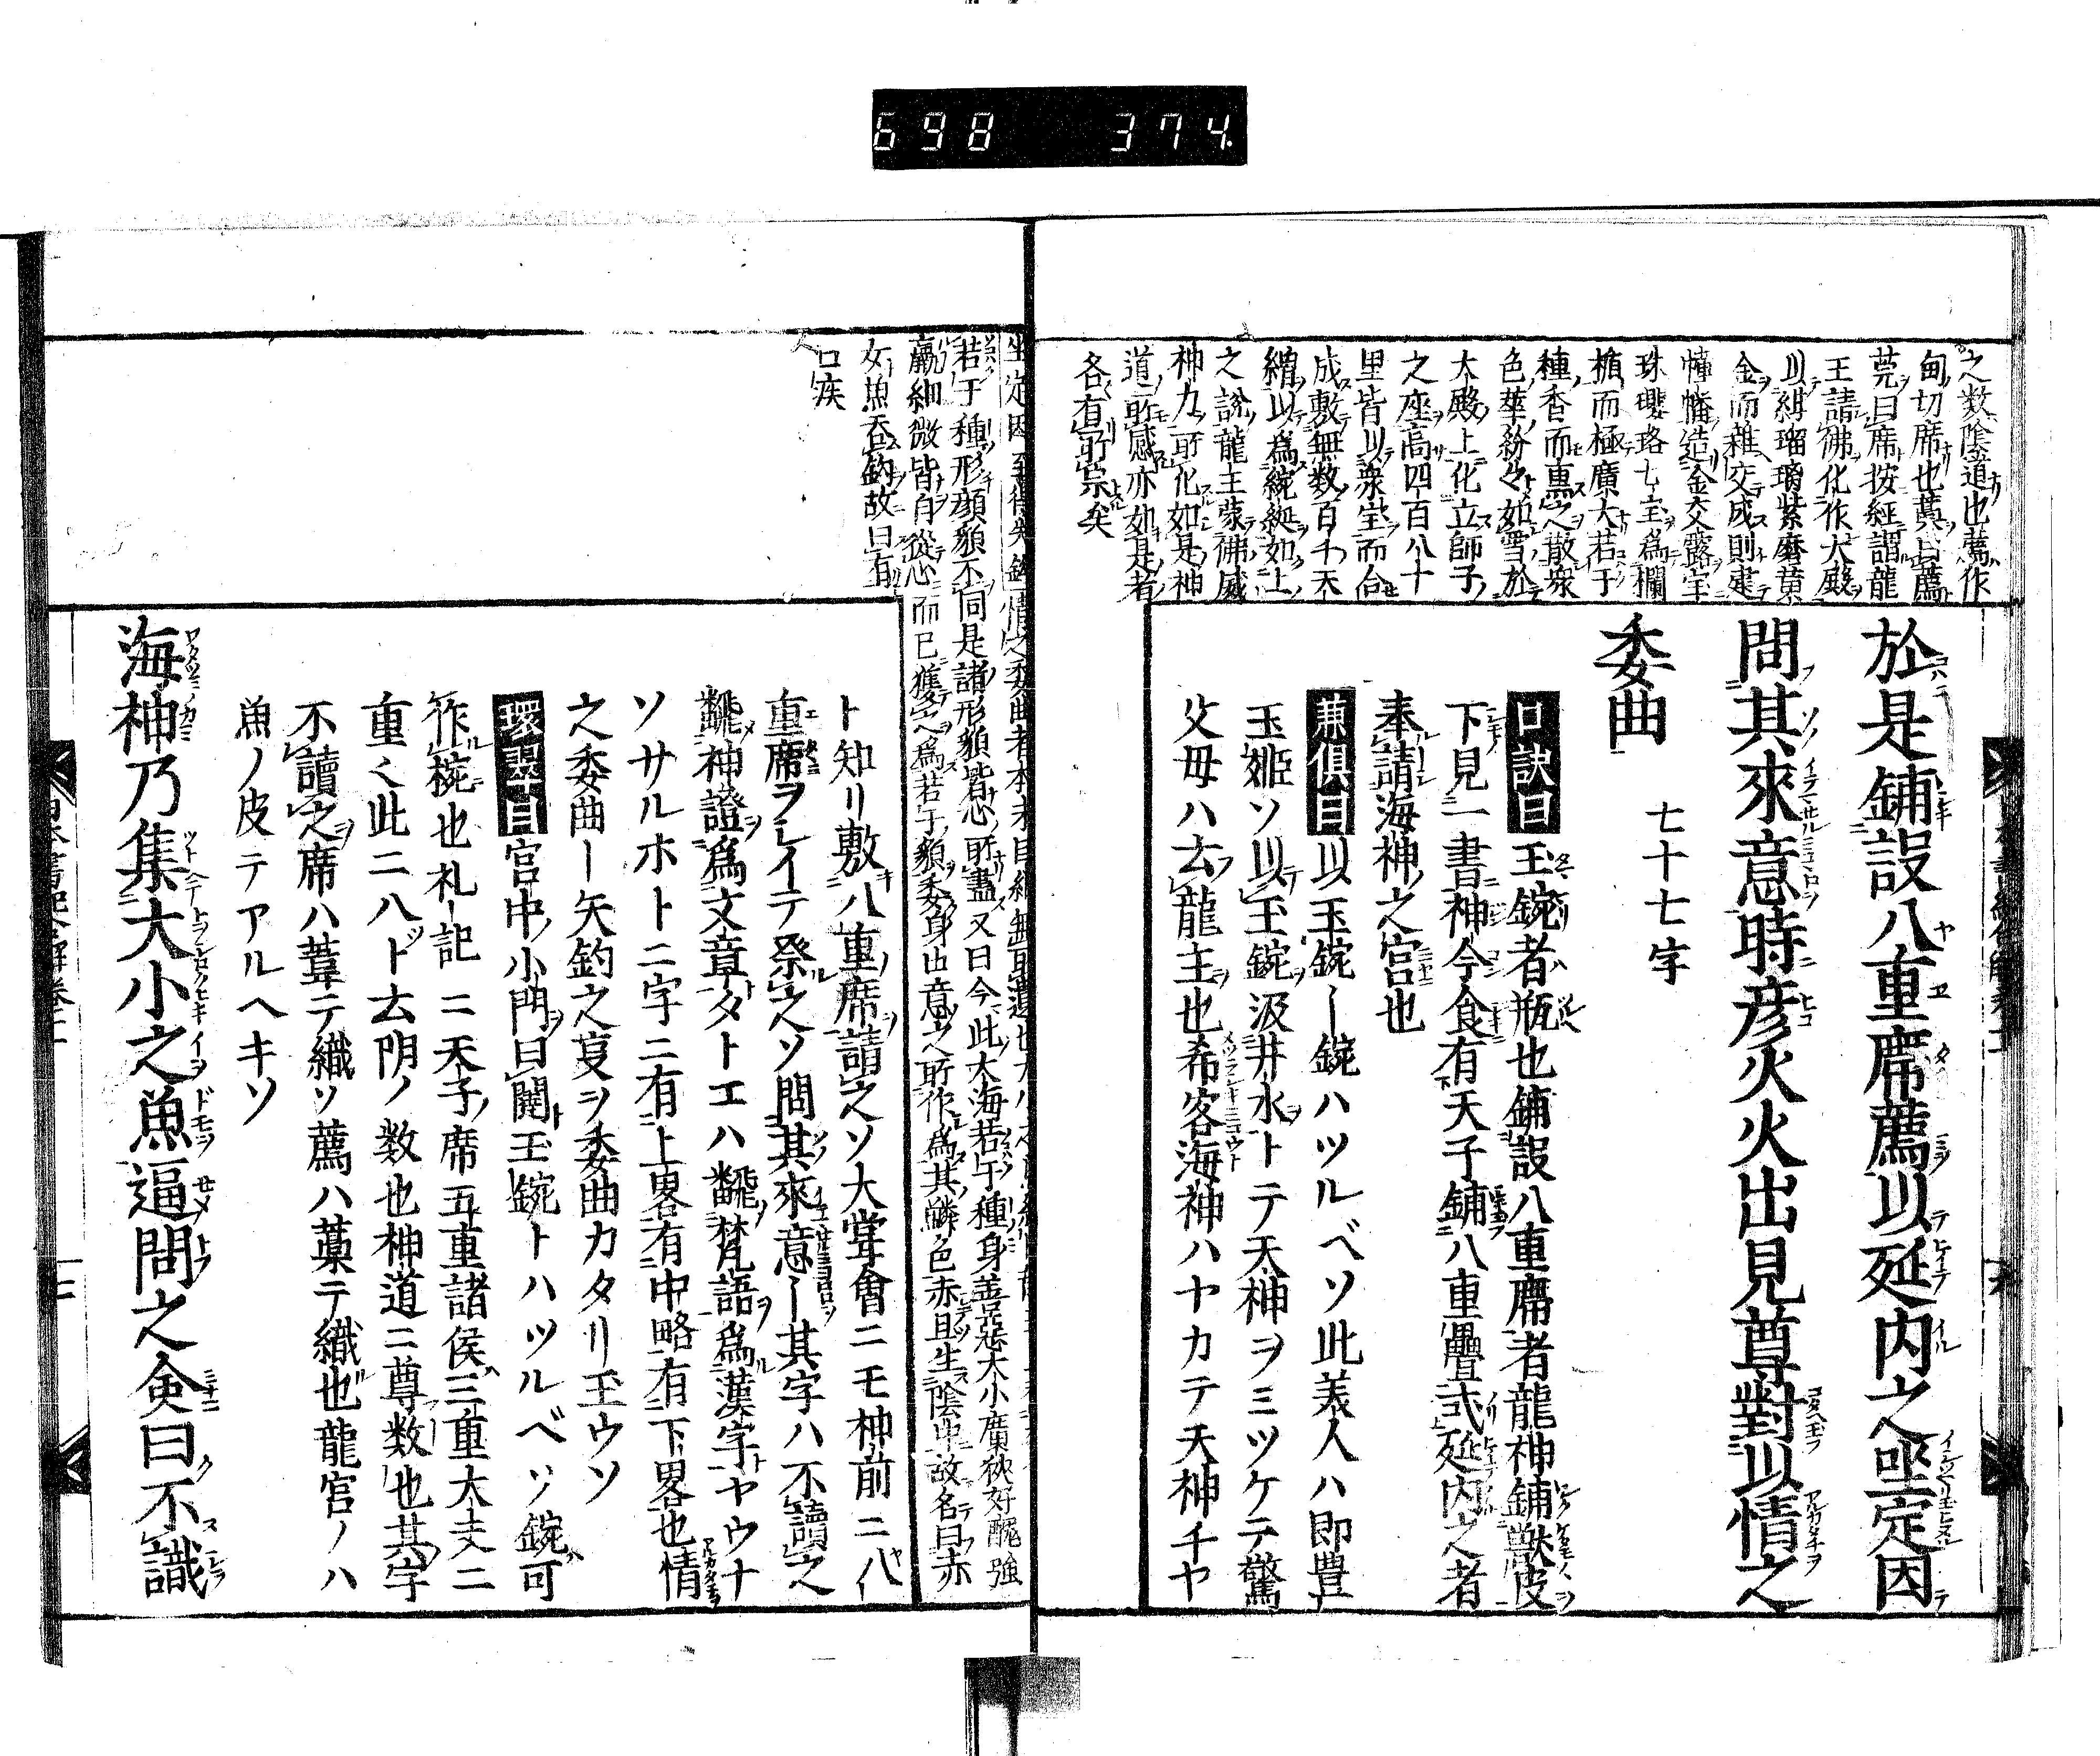 698 374.
之数陰道也薦作
甸切席也蒉曰薦
莞曰席按經謂龍
王請佛化作大殿
以紺瑠璃紫磨黄
金而雜交成則建
幢幡造金交露宝
珠瓔珞七宝為欄
楯而極廣大若于
種香而熏之散衆
色華紛々如雪於
大殿上化立師子
之座高四百八十
里皆以衆宝而合
成敷無数百千天
繒以為綩綖如上
之說龍王蒙佛威
神力所化如是神
道所感亦如是者
各有所宗矣
於是鋪設八重席薦以延内之坐定因
問其來意時彦火火出見尊對以情之
委曲
七十七字
口訣曰玉鋺者瓶也鋪設八重席者龍神鋪獣皮
下見一書神今食有天子鋪八重疊式延内之者
奉請海神之宮也
兼倶曰以玉鋺ー鋺ハツルベソ此美人ハ即豊
玉姫ソ以玉鋺汲井水トテ天神ヲミツケテ驚
父母ハ去龍主也希客海神ハヤカテ天神チヤ
若于種形顔貌不同是諸形貌皆心所盡又曰今此大海若于種身善惡大小廣狹好醜強
羸細微皆自從心而已獲之為若于貌委身由意之所作為其鱗色赤且生陰中故名曰赤
女魚呑鈎故曰有
口疾
ト知リ敷八重席請之ソ大嘗會ニモ神前ニ八
重席ヲシイテ祭之ソ問其來意ー其字ハ不讀之
飜神證為文章タトエハ飜梵語為漢字ヤウナ
ソサルホトニ字ニ有上畧有中略有下畧也情
之委曲ー矢鈎之㕝ヲ委曲カタリ玉ウソ
環翠曰宮中小門曰闥玉鋺トハツルベソ鋺可
作椀也礼ー記ニ天子席五重諸侯三重大夫二
重く此ニ八ト云阴ノ数也神道ニ尊数也其字
不讀之席ハ葦テ織ソ薦ハ藁テ織也龍宮ノハ
魚ノ皮テアルヘキソ
海神乃集大小之魚逼問之僉曰不識